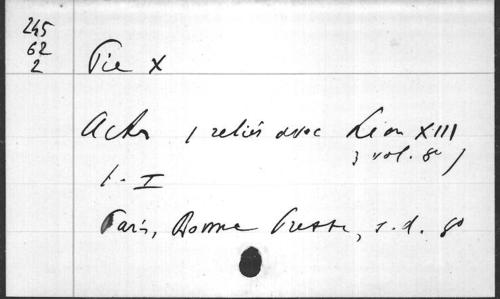 245
62
2
Pie X
Actes ( reliés avec Léon XIII
3 vol. 8° )
t. I
Paris, Bonne Presse, s.d. 8°